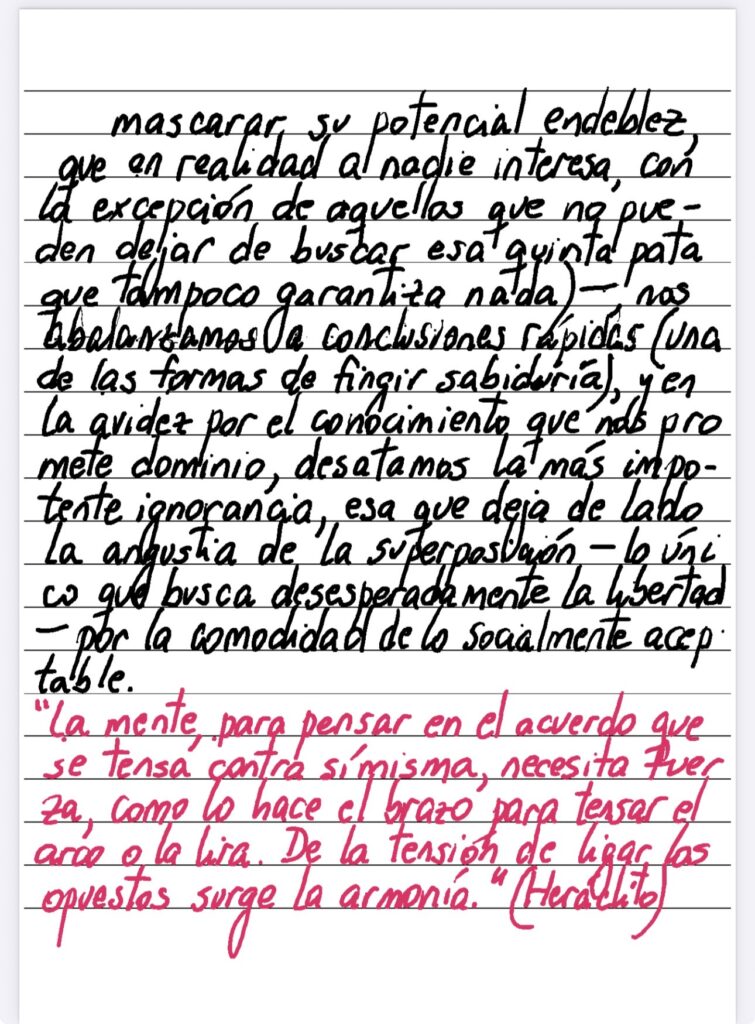 mascarar su potencial endeblez,
que en realidad a nadie interesa, con
la excepción de aquellos que no pue-
den dejar de buscar esa quinta pata
que tampoco garantiza nada)—, nos
abalanzamos a conclusiones rápidas (una
de las formas de fingir sabiduría), y en
la avidez por el conocimiento que nos pro
mete dominio, desatamos la más impo-
tente ignorancia, esa que deja de lado
la angustia de la superposición — lo úni
co que busca desesperadamente la libertad
— por la comodidad de lo socialmente acep-
table.
"La mente, para pensar en el acuerdo que
se tensa contra sí misma, necesita fuer
za, como lo hace el brazo para tensar el
arco o la lira. De la tensión de ligar los
opuestos surge la armonía." (Heráclito)